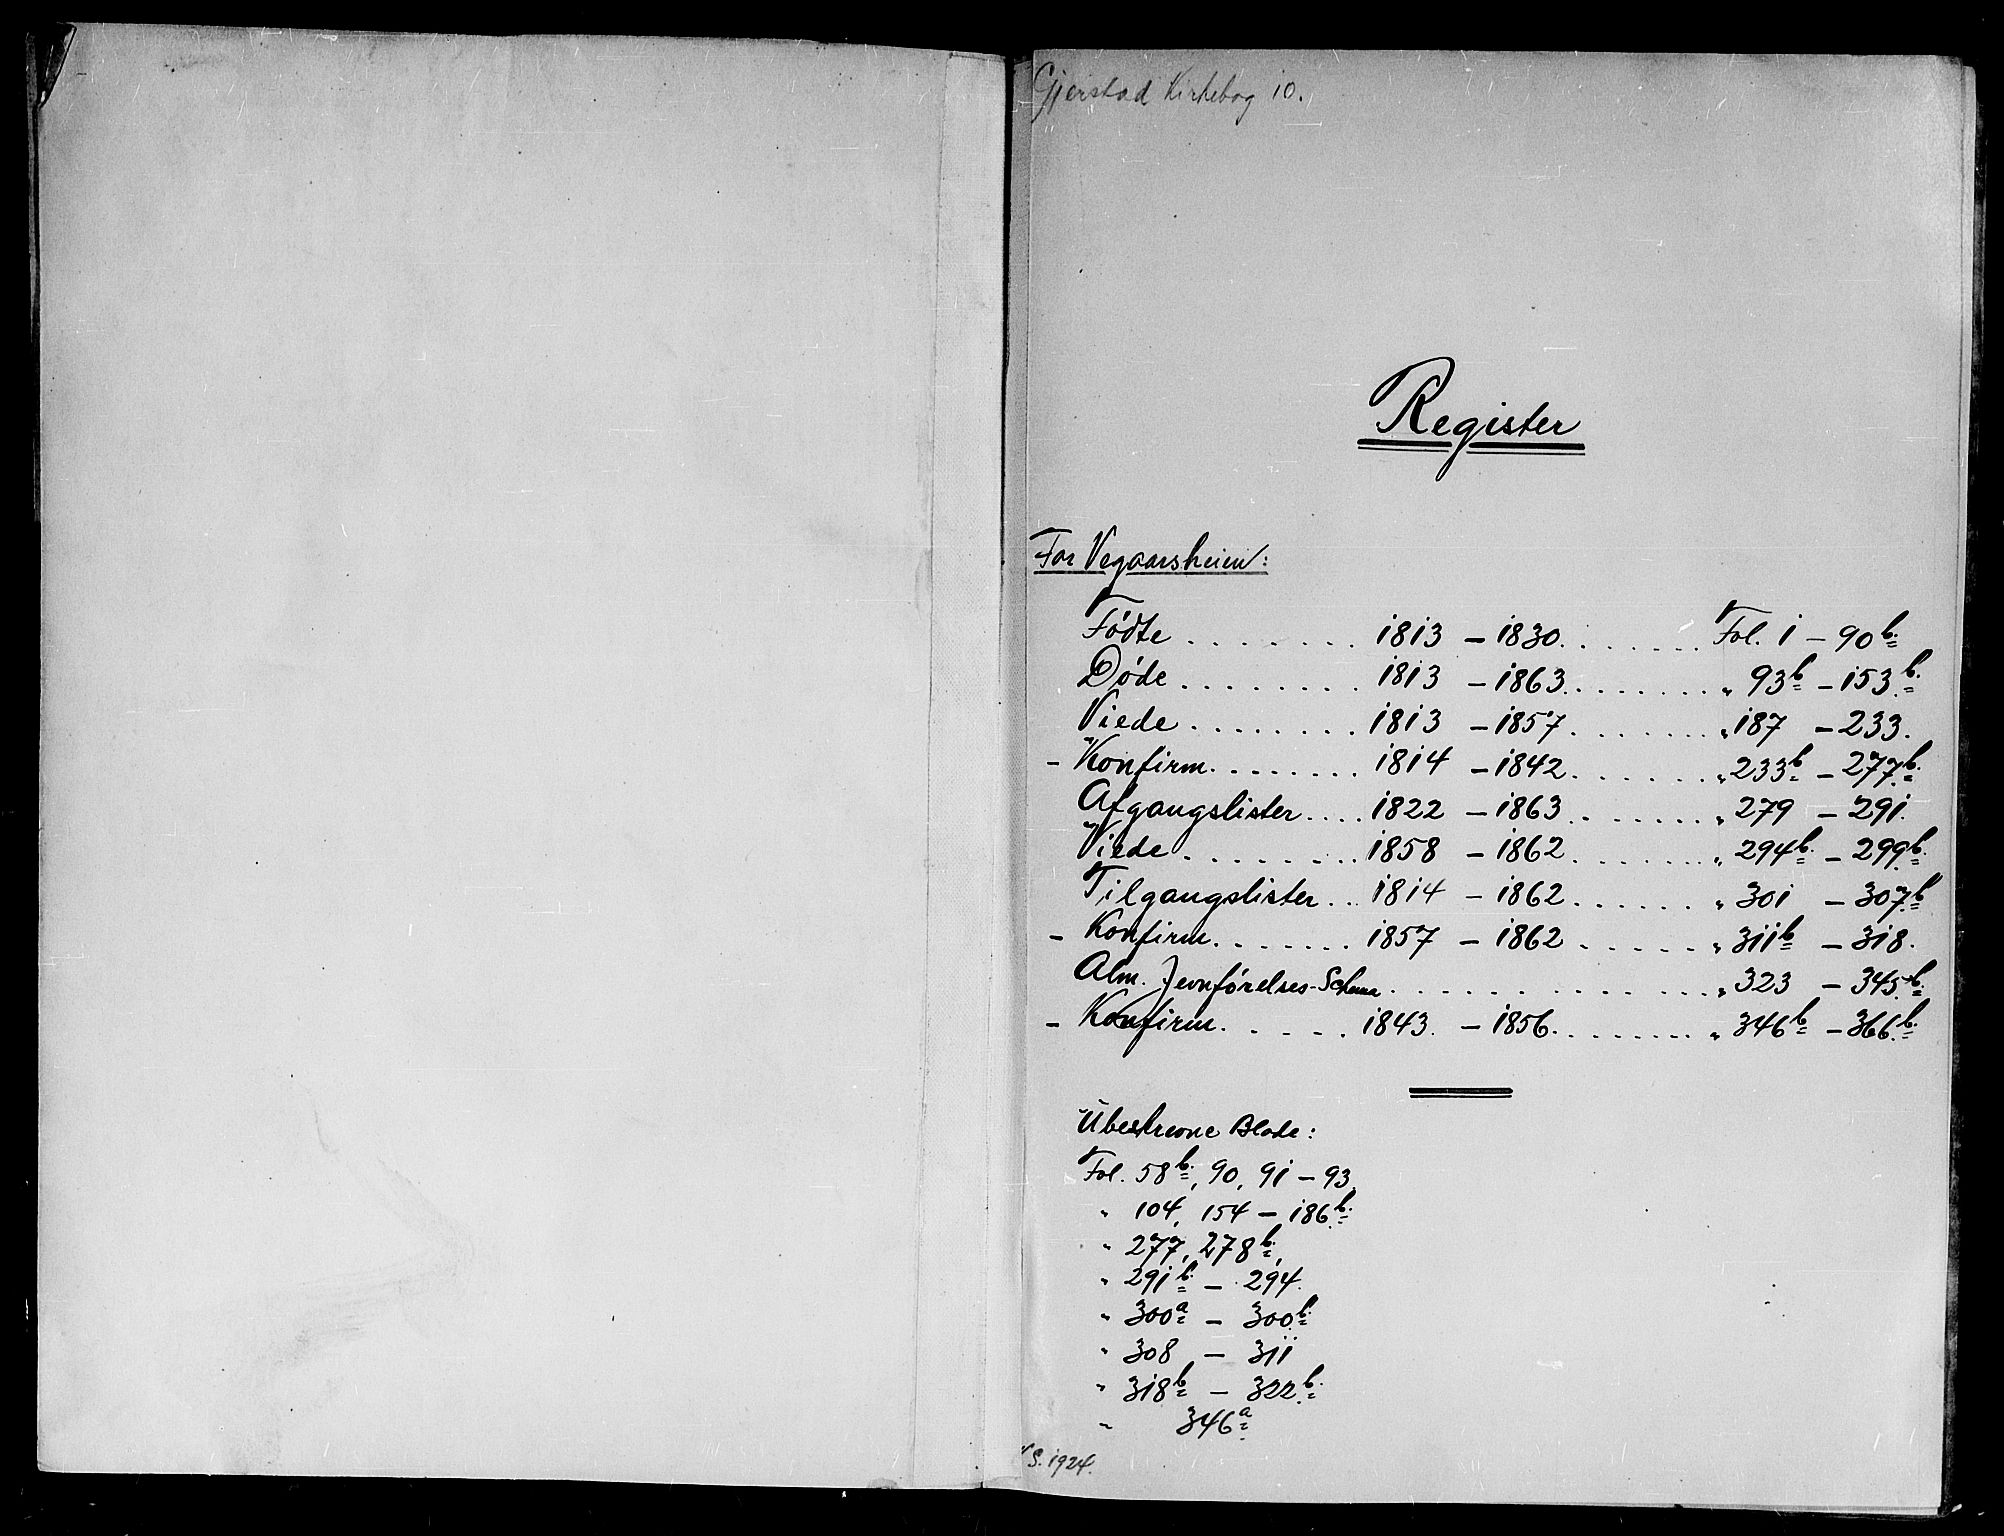 Gjerstad Kirkebog 10.
Register
For Vegaarsheim:
Fødte . . . . . . . . 1813 – 1830. . . . . . . . Fol. 1 – 90b.
Døde . . . . . . . . 1813 – 1863. . . . . . . . „ 93b – 153b.
Viede . . . . . . . . 1813 – 1857. . . . . . . . „ 187 – 233.
– Konfirm. . . . . . . . 1814 – 1842. . . . . . . . „ 233b – 277b.
Afgangslister . . . . 1822 – 1863. . . . . . . . „ 279 – 291.
Viede . . . . . . . . 1858 – 1862. . . . . . . . „ 294b – 299b.
Tilgangslister . . . 1814 – 1862. . . . . . . „ 301 – 307b
– Konfirm. . . . . . . 1857 – 1862 . . . . . . . „ 311b – 318.
Alm. Jevnførelses-Schema . . . . . . . . . . . . . . „ 323 – 345b.
– Konfirm. . . . . . 1843. – 1856. . . . . . . . „ 346b – 366b.
Ubeskrevne Blade:
Fol. 58b., 90, 91 – 93.
„ 104, 154 – 186b.
„ 277, 278b.,
„ 291b. – 294.
„ 300a – 300b.
„ 308 – 311
„ 318b – 322b.
„ 346a
S. 1924.